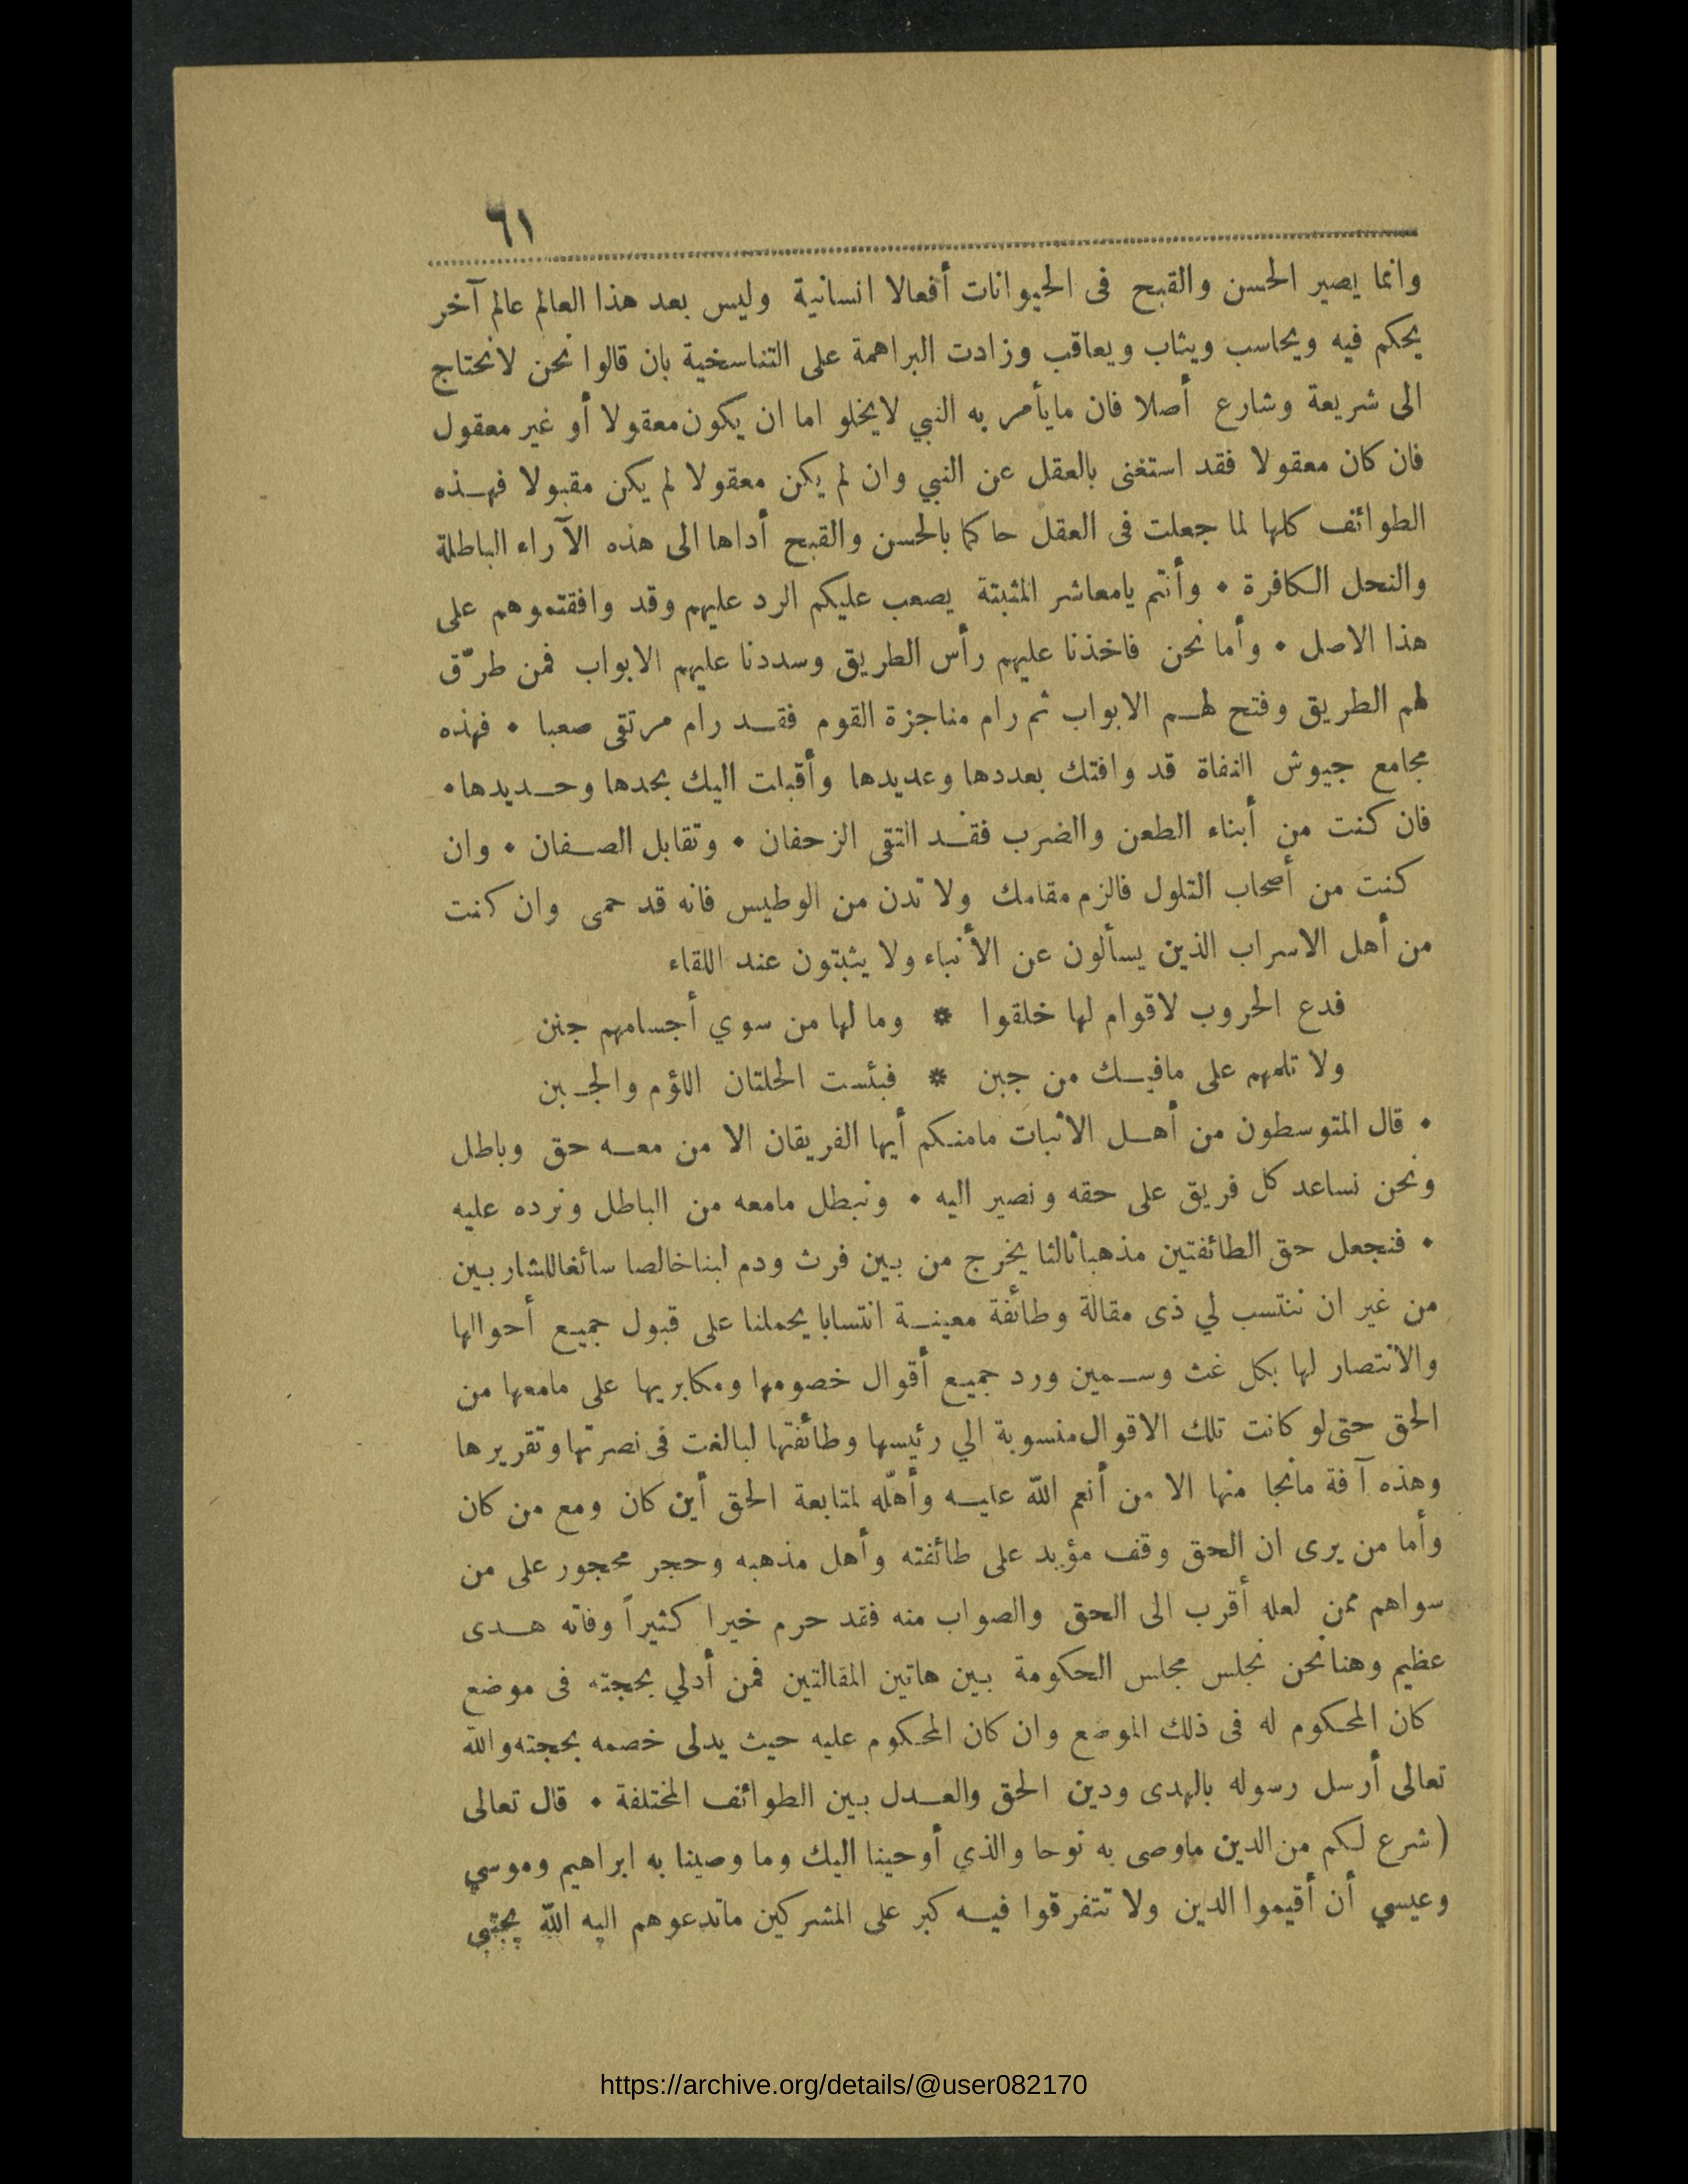 ٦١
وانما يصير الحسن والقبح فى الحيوانات أفعالا انسانية وليس بعد هذا العالم عالم آخر
يحكم فيه ويحاسب ويثاب ويعاقب وزادت البراهمة على التناسخية بان قالوا نحن لانحتاج
الى شريعة وشارع أصلا فان مايأمر به النبي لايخلو اما ان يكون معقولا أو غير معقول
فان كان معقولا فقد استغنى بالعقل عن النبي وان لم يكن معقولا لم يكن مقبولا فهذه
الطوائف كلها لما جعلت فى العقل حاكما بالحسن والقبح أداها الى هذه الآراء الباطلة
والنحل الكافرة • وأنتم يامعاشر المثبتة يصعب عليكم الرد عليهم وقد وافقتموهم على
هذا الاصل • وأما نحن فاخذنا عليهم رأس الطريق وسددنا عليهم الابواب فمن طرّق
لهم الطريق وفتح لهم الابواب ثم رام مناجزة القوم فقد رام مرتقى صعبا • فهذه
مجامع جيوش النفاة قد وافتك بعددها وعديدها وأقبلت اليك بحدها وحديدها•
فان كنت من أبناء الطعن والضرب فقد التقى الزحفان • وتقابل الصفان • وان
كنت من أصحاب التلول فالزم مقامك ولا تدن من الوطيس فانه قد حمى وان كنت
من أهل الاسراب الذين يسألون عن الأنباء ولا يثبتون عند اللقاء
فدع الحروب لاقوام لها خلقوا * وما لها من سوي أجسامهم جنن
ولا تلمهم على مافيك من جبن * فبئست الخلتان اللؤم والجبن
• قال المتوسطون من أهل الاثبات مامنكم أيها الفريقان الا من معه حق وباطل
ونحن نساعد كل فريق على حقه ونصير اليه • ونبطل مامعه من الباطل ونرده عليه
• فنجعل حق الطائفتين مذهبا ثالثا يخرج من بين فرث ودم لبنا خالصا سائغا للشاربين
من غير ان ننتسب لي ذى مقالة وطائفة معينة انتسابا يحملنا على قبول جميع أحوالها
والانتصار لها بكل غث وسمين ورد جميع أقوال خصومها ومكابريها على مامعها من
الحق حتى لو كانت تلك الاقوال منسوبة الي رئيسها وطائفتها لبالغت فى نصرتها وتقريرها
وهذه آفة مانجا منها الا من أنعم الله عليه وأهّله لمتابعة الحق أين كان ومع من كان
وأما من يرى ان الحق وقف مؤبد على طائفته وأهل مذهبه وحجر محجور على من
سواهم ممن لعله أقرب الى الحق والصواب منه فقد حرم خيرا كثيراً وفاته هدى
عظيم وهنا نحن نجلس مجلس الحكومة بين هاتين المقالتين فمن أدلي بحجته فى موضع
كان المحكوم له فى ذلك الموضع وان كان المحكوم عليه حيث يدلى خصمه بحجته والله
تعالى أرسل رسوله بالهدى ودين الحق والعدل بين الطوائف المختلفة • قال تعالى
(شرع لكم من الدين ماوصى به نوحا والذي أوحينا اليك وما وصينا به ابراهيم وموسي
وعيسي أن أقيموا الدين ولا تتفرقوا فيه كبر على المشركين ماتدعوهم اليه الله يجتبي
https://archive.org/details/@user082170